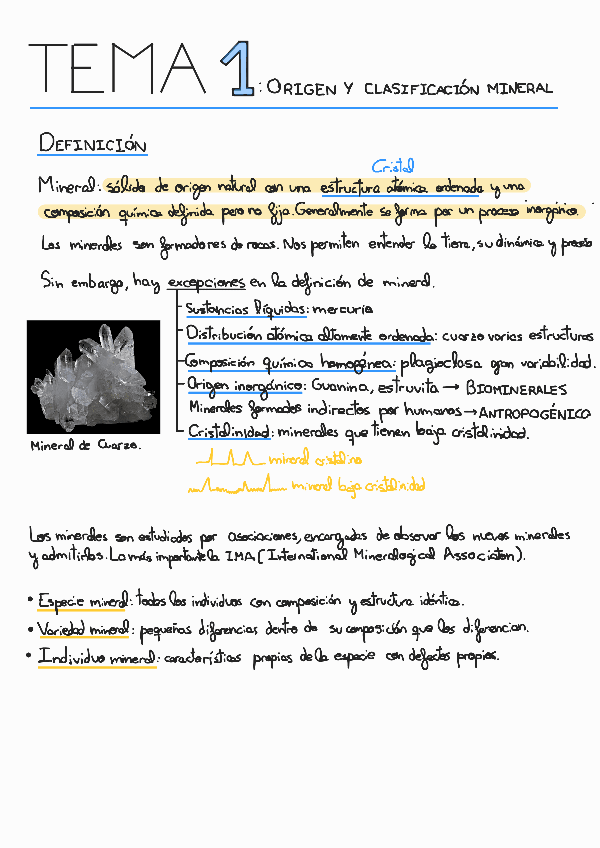 TEMA 1: ORIGEN Y CLASIFICACIÓN MINERAL
DEFINICIÓN
Cristal
Mineral: sólido de origen natural con una estructura atómica ordenada y una
composición química definida pero no fija. Generalmente se forma por un proceso inorgánico.
Los minerales son formadores de rocas. Nos permiten entender la tierra, su dinámica y
Sin embargo, hay excepciones en la definición de mineral.
Sustancias líquidas: mercurio
Distribución atómica altamente ordenada: cuarzo varias estructuras
Composición química homogénea: plagioclasa gran variabilidad.
Origen inorgánico: Guanina, estruvita → BIOMINERALES
Minerales formados indirectos por humanos → ANTROPOGÉNICO
Cristalinidad: minerales que tienen baja cristalinidad.
Mineral de Cuarzo.
mineral cristalino
mineral baja cristalinidad
Los minerales son estudiados por asociaciones, encargadas de observar los nuevos minerales
y admitirlos. La más importante la IMA (International Mineralogical Association).
• Especie mineral: todos los individuos con composición y estructura idéntica.
• Variedad mineral: pequeñas diferencias dentro de su composición que los diferencian.
• Individuo mineral: características propias de la especie con defectos propios.